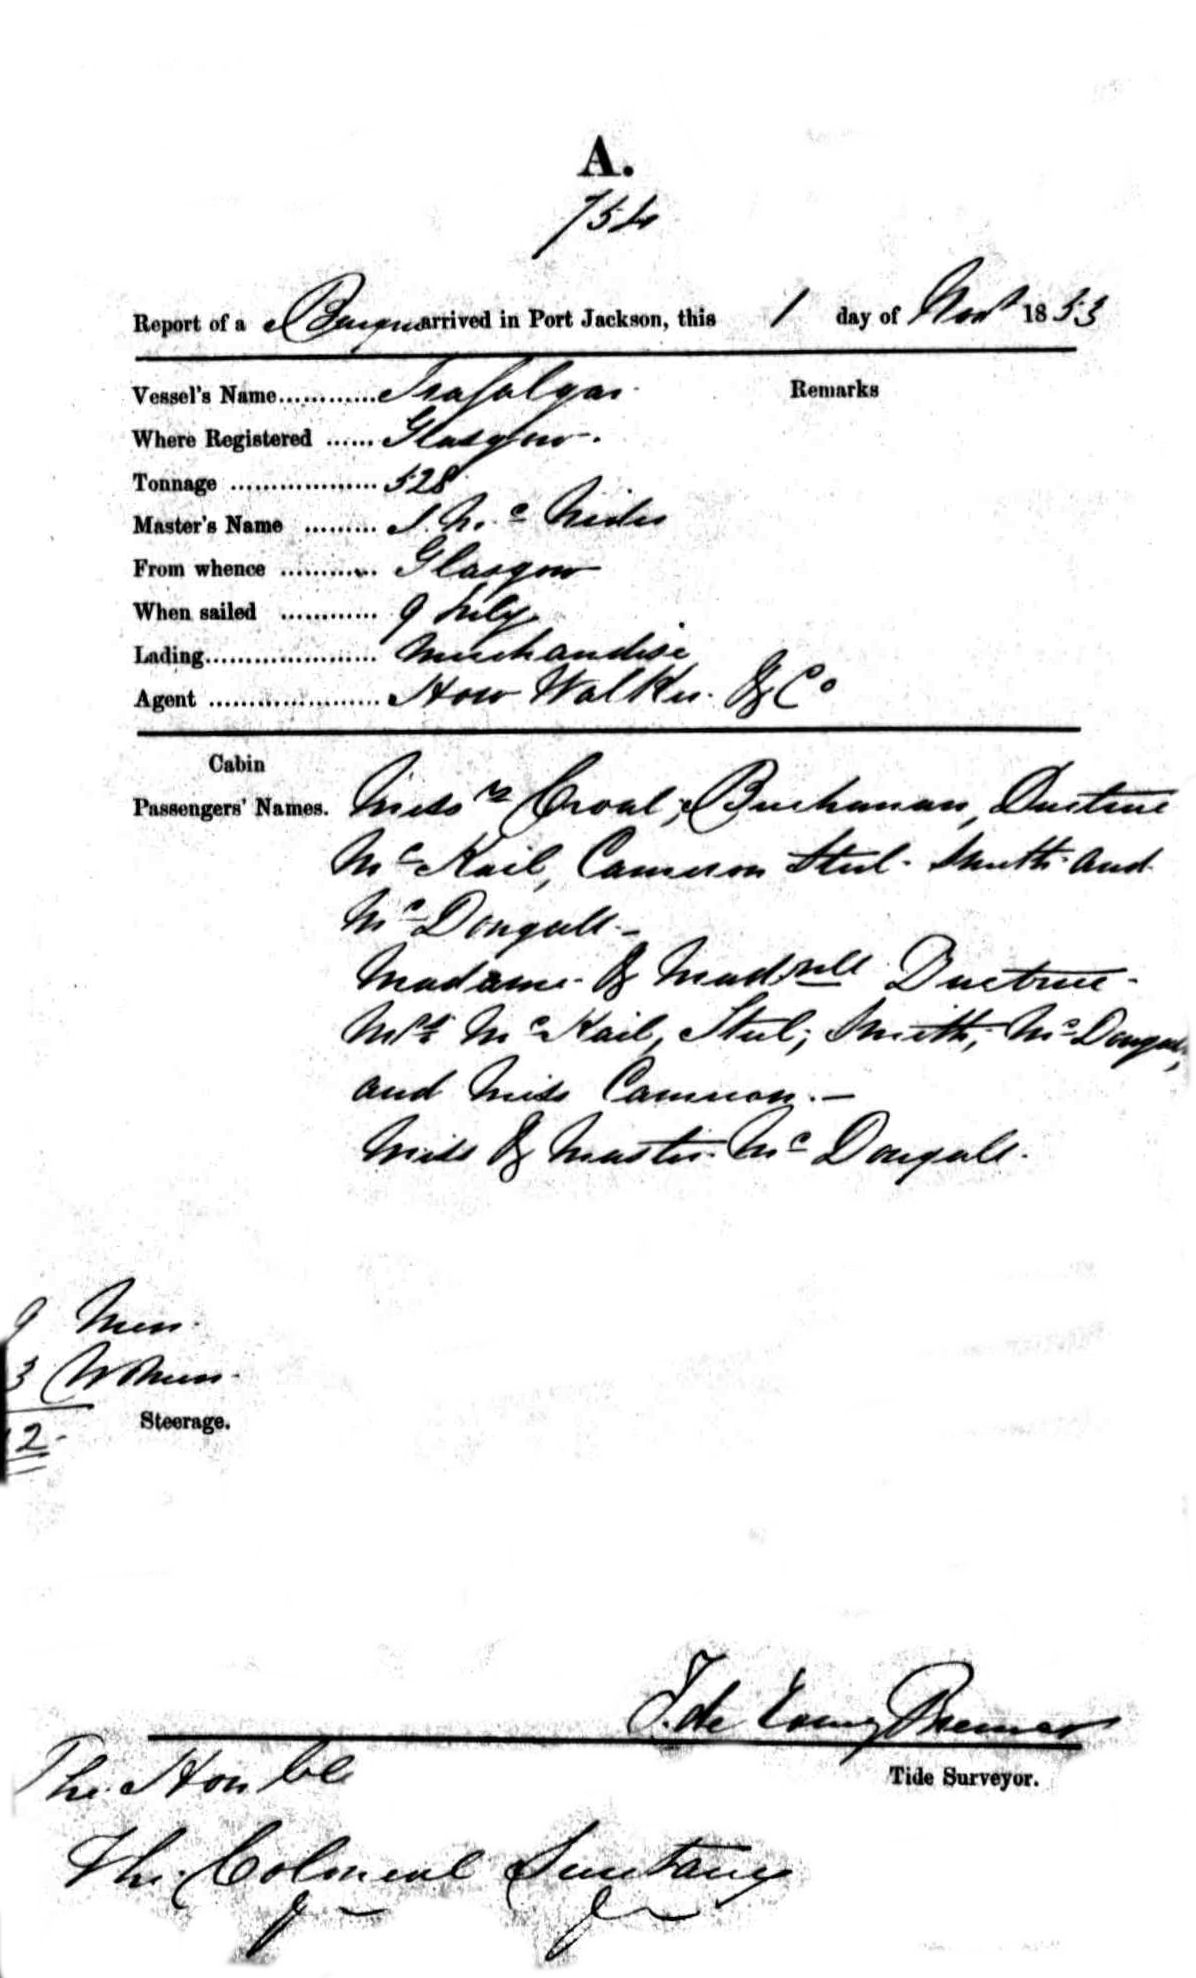 A.
754
Report of a Barque arrived in Port Jackson, this 1 day of Novr 1853
Vessel's Name............Trafalgar. Remarks
Where Registered ......Glasgow.
Tonnage ..................528
Master's Name .........J. Mc
From whence ............Glasgow
When sailed ............9 July
Lading.....................Merchandise
Agent .....................How Walker & Co
Cabin
Passengers' Names. Messrs Croal, Buchanan, Ductrue
Mc Kail, Cameron Steel. Smith and
Mc Dougall.-
Madame. & Madselle Ductrue.
Mrs Mc Kail, Steel, Smith, Mc Dougall,
and Miss Cameron.-
Miss & Master Mc Dougall.
9 Men.
3 Women.
Steerage.
12.
Tide Surveyor.
The Honble
The Colonial Secretary